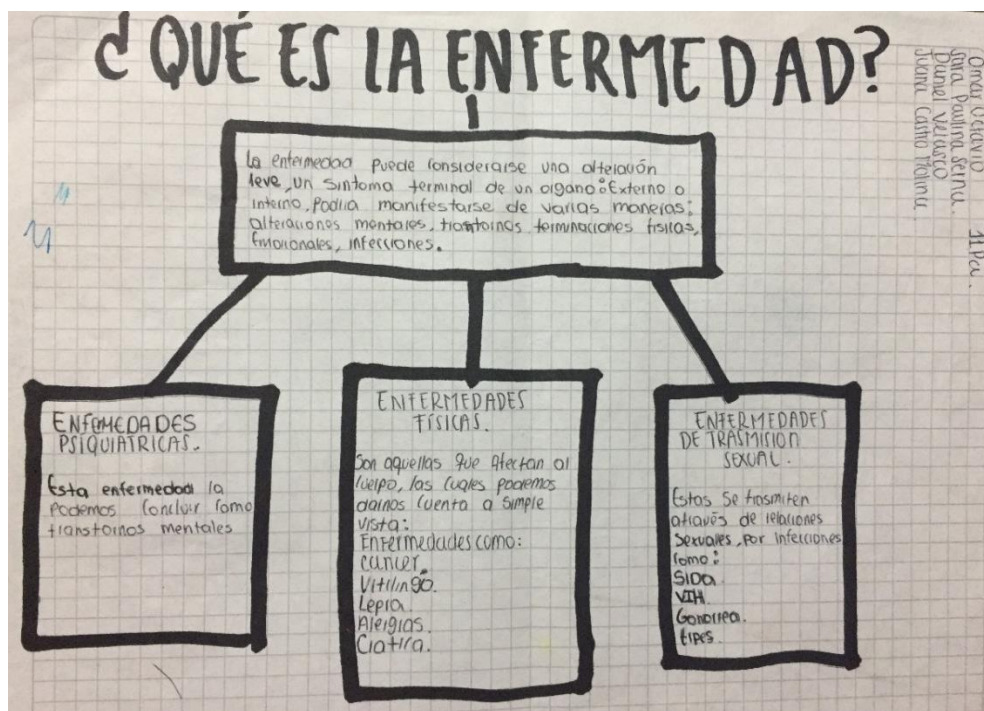 ¿QUÉ ES LA ENFERMEDAD?
La enfermedad puede considerarse una alteración
leve, un sintoma terminal de un organo: Externo o
interno, Podria manifestarse de varias maneras:
alteraciones mentales, trastornos terminaciones fisicas,
Emocionales, infecciones.
ENFEMEDADES
PSIQUIATRICAS.
Esta enfermedad la
Podemos Concluir Como
transtornos mentales
ENFERMEDADES
FÍSICAS.
Son aquellas que Afectan al
Cuerpo, las cuales podemos
darnos cuenta a simple
vista:
Enfermedades como:
cancer.
Vitilingo.
Lepra.
Alergias.
Ciatica.
ENFERMEDADES
DE TRASMISION
SEXUAL.
Estas Se trasmiten
através de relaciones
Sexuales, por infecciones
Como:
SIDA
VIH
Gonorrea.
Omar Octavio
Sara Paulina Serna. 11
Daniel Velasco
Juana Castro Molina